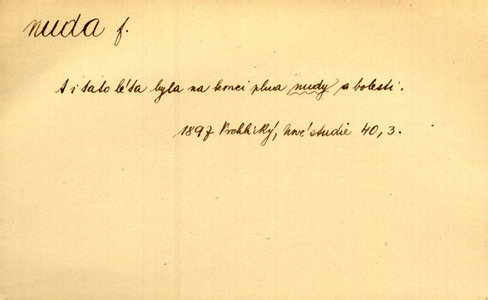 nuda f.
A i tato léta byla na konci plna nudy a bolesti.
1897 Vrchlický, Nové studie 40, 3.